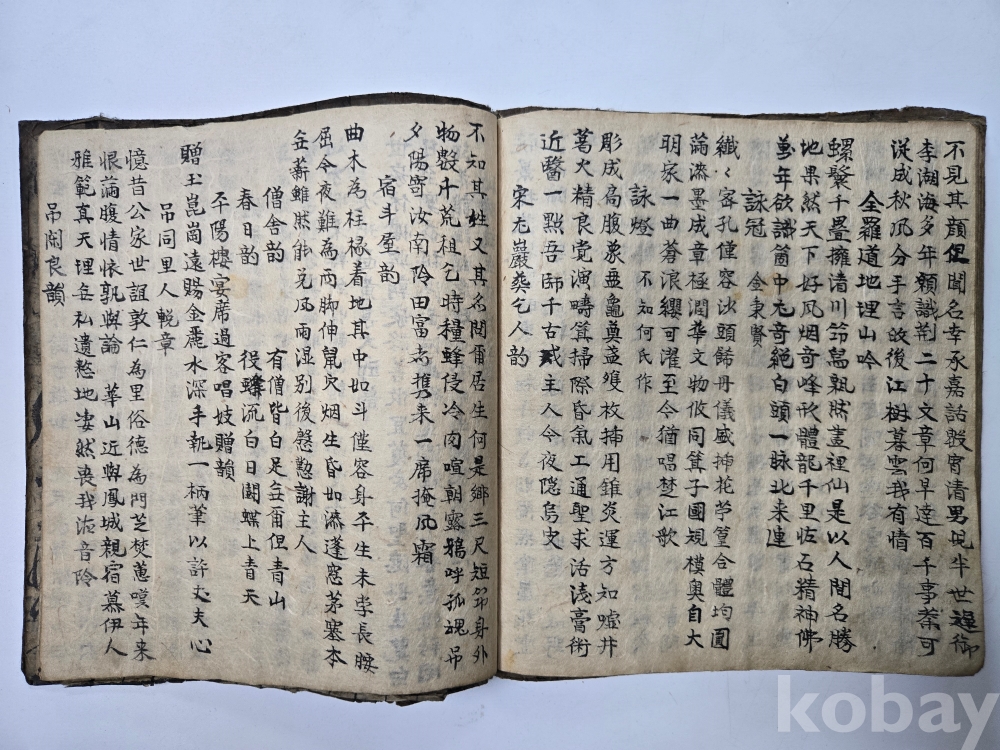 不見其顔但聞名幸承嘉話殷宵清男児半世逢御
李湖海多年願識荆二十文章何早達百千事業可
従成秋風分手言故後江樹暮雲我有情
全羅道地理山吟
螺鬟千疊擁清川節鳥孰然畫裡仙是以人間名勝
地果然天下好風烟奇峰形體龍千里怪石精神佛
萬年欲識箇中尤奇絕白頭一脉北来連
詠冠 金秉賢
纖〻容孔僅容沙頭餙丹儀盛揷花竽篁合體均圓
滿漆墨成章極潤華文物攸同箕子國規模奥自大
明家一曲蒼浪纓可濯至今猶唱楚江歌
詠燈 不知何氏作
彫成高腹象盃龜奠盞雙枚揷用錐炎運方知噓井
萬火精良覚演疇箕掃際昏氣工通聖求沽淺膏術
近醫一點吾師千古或主人今夜隐烏史
宋尤巖葬乞人韵
不知其姓又其名問爾居生何是鄉三尺短笻身外
物數斗荒租乞時糧蜂侵冷肉喧朝露鴉呼孤魂吊
夕陽寄汝南阡田富者携来一席掩風霜
宿斗屋韵
曲木為柱椽着地其中如斗僅容身平生未学長腰
屈今夜難為両脚伸鼠穴烟生昏如漆蓬窓茅塞本
無薪雖然能免風雨湿别後慇懃謝主人
僧舍韵 有僧皆白足無爾但青山
春日韵 役蟻流白日鬪蝶上青天
平陽樓宴席過客唱妓贈韻
贈玉崑崗遠賜金麗水深手執一柄筆以許丈夫心
吊同里人輓章
憶昔公家世誼敦仁為里俗德為門芝焚蕙嘆年来
恨滿腹情懷孰與論 華山近與鳳城親宿慕伊人
雅範真天理無私遺慜地凄然喪我浤音阾
吊閔良韻
kobay